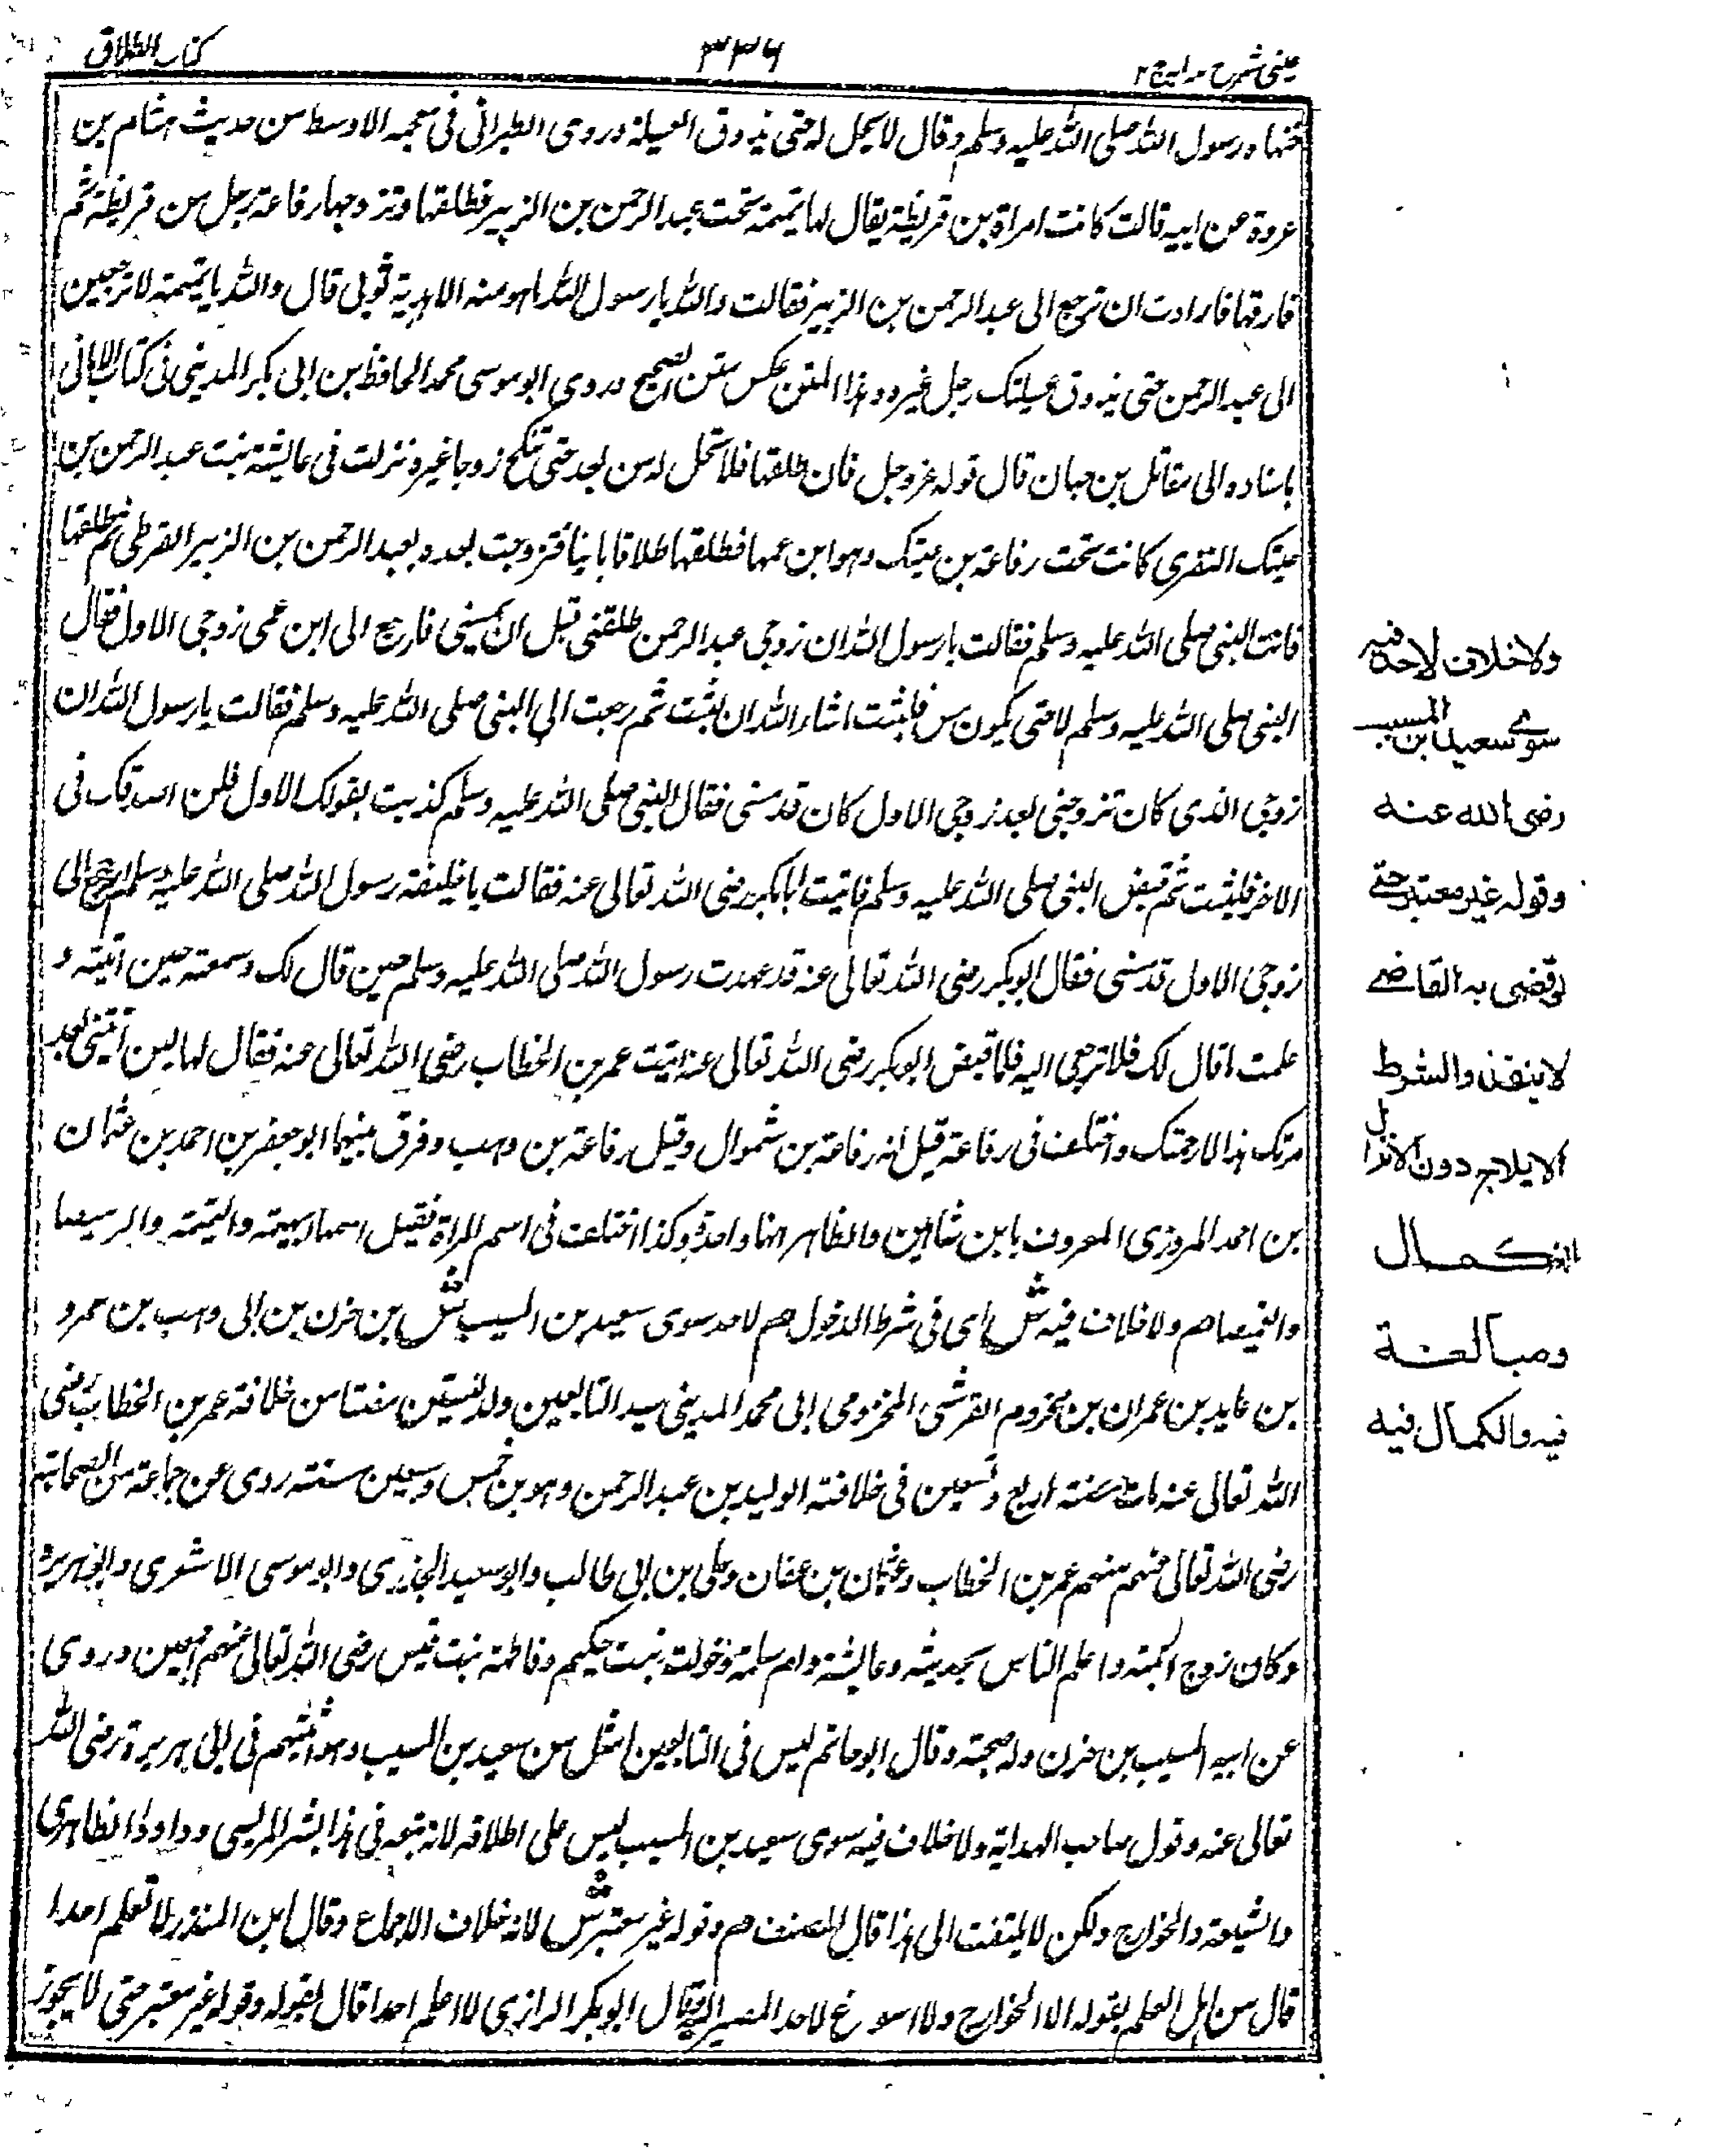 عینی شرح هدایه ج ۲
۳۳۶
کتاب الطلاق
فمنها رسول الله صلى الله عليه وسلم وقال لا يحل له حتى يذوق العسيلة وروى الطبراني في معجمه الاوسط من حديث هشام بن
عروة عن ابيه قالت كانت امراة من قريظة يقال لها تميمة تحت عبد الرحمن بن الزبير فطلقها وتزوجها رفاعة رجل من قريظة ثم
فارقها فارادت ان ترجع الى عبد الرحمن بن الزبير فقالت والله يا رسول الله ما هو منه الا هدبة ثوبي قال والله يا تميمة لا ترجعين
الى عبد الرحمن حتى يذوق عسيلتك رجل غيره وهذا المتن عكس متن الصحيح وروى ابو موسى محمد الحافظ بن ابي بكر المديني في كتاب الامالي
باسناده الى مقاتل بن حبان قال قوله عز وجل فان طلقها فلا تحل له من بعد حتى تنكح زوجا غيره نزلت في عايشة بنت عبد الرحمن بن
عتيك النضري كانت تحت رفاعة بن عتيك وهو ابن عمها فطلقها طلاقا باينا فتزوجت بعده بعبد الرحمن بن الزبير القرظي ثم طلقها
فاتت النبي صلى الله عليه وسلم فقالت يا رسول الله ان زوجي عبد الرحمن طلقني قبل ان يمسني فارجع الى ابن عمي زوجي الاول فقال
النبي صلى الله عليه وسلم لا حتى يكون مس فلبثت ما شاء الله ان تلبث ثم رجعت الى النبي صلى الله عليه وسلم فقالت يا رسول الله ان
زوجي الذي كان تزوجني بعد زوجي الاول كان قد مسني فقال النبي صلى الله عليه وسلم كذبت بقولك الاول فلن اصدقك في
الاخر فلبثت ثم قبض النبي صلى الله عليه وسلم فاتيت ابا بكر رضى الله تعالى عنه فقالت يا خليفة رسول الله صلى الله عليه وسلم ارجع الى
زوجي الاول قد مسني فقال ابو بكر رضى الله تعالى عنه قد عهدت رسول الله صلى الله عليه وسلم حين قال لك وسمعته حين اتيته و
علمت ما قال لك فلا ترجعي اليه فلما قبض ابو بكر رضى الله تعالى عنه اتيت عمر بن الخطاب رضى الله تعالى عنه فقال لها لين اتيتني بعد
مرتك هذا لارجمنك واختلف في رفاعة قيل انه رفاعة بن شموال وقيل رفاعة بن وهب وفرق بينهما ابو جعفر بن احمد بن عثمان
بن احمد المروزي المعروف بابن شاهين والظاهر انها واحدة وكذا اختلف في اسم المراة فقيل اسمها سهيمة والتميمة والرميصا
والغميصا م ولا خلاف فيه ش اى في شرط الدخول م لاحد سوى سعيد بن المسيب ش بن حزن بن ابي وهب بن عمرو
بن عايد بن عمران بن مخزوم القرشي المخزومي ابي محمد المديني سيد التابعين ولد لسنتين مضتا من خلافة عمر بن الخطاب رضى
الله تعالى عنه مات سنة اربع وتسعين في خلافة الوليد بن عبد الرحمن وهو بن خمس وسبعين سنة روى عن جماعة من الصحابة
رضى الله تعالى عنهم منهم عمر بن الخطاب وعثمان بن عفان وعلي بن ابي طالب وابو سعيد الخدري وابو موسى الاشعري وابو هريرة
وكان زوج ابنته واعلم الناس بحديثه وعايشة وام سلمة وخولة بنت حكيم وفاطمة بنت قيس رضى الله تعالى عنهم اجمعين وروى
عن ابيه المسيب بن حزن وله صحبة وقال ابو حاتم ليس في التابعين انبل من سعيد بن المسيب وهو اثبتهم في ابي هريرة رضى الله
تعالى عنه وقول صاحب الهداية ولا خلاف فيه سوى سعيد بن المسيب ليس على اطلاقه لانه تبعه في هذا بشر المريسي وداود الظاهري
والشيعة والخوارج ولكن لا يلتفت الى هذا قال المصنف م وقوله غير معتبر ش لانه خلاف الاجماع وقال ابن المنذر لا نعلم احدا
قال من اهل العلم بقوله الا الخوارج ولا اسوغ لاحد المصير اليه وقال ابو بكر الرازي لا اعلم احدا قال بقوله وقوله غير معتبر حتى لا يجوز
ولا خلاف لاحد فيه
سوى سعيد ابن المسيب
رضى الله عنه
وقوله غير معتبر حتى
لو قضى به القاضى
لا ينفذ والشرط
الايلاج دون الانزال
لانه كمال
ومبالغة
فيه والكمال فيه